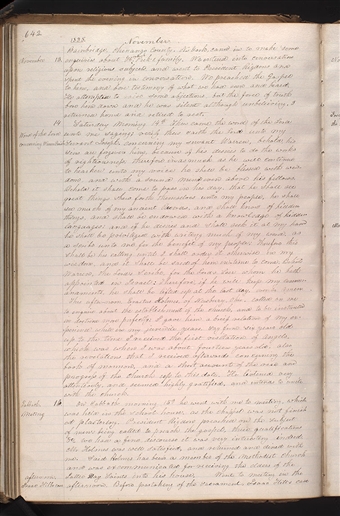 642
1835. November
Bainbridge, Chenango County, New York, came in to make some
November 13 enquiries about
upon religious subjects and went to President Rigdon's and
spent the evening in conversation. He preached the Gospel
to him, and bore testimony of what we had seen and heard.
He attempted to raise some objections but the force of truth
bore him down, and he was silent although unbelieving. I
returned home and retired to rest.
14 Saturday Morning 14. Thus came the word of the Lord
unto me saying verily thus saith the Lord unto my
servant Joseph concerning my servant Warren, behold his
sins are forgiven him because of his desires to do the works
of righteousness therefore inasmuch as he will continue
to hearken unto my voice, he shall be blessed with wis-
dom, and with a sound mind even above his fellows.
Behold it shall come to pass in his day, that he shall see
great things shew forth themselves unto my people, he shall
see much of my ancient records, and shall know of hidden
things, and shall be endowed with a knowledge of hidden
languages and if he desire and shall seek it at my hand
he shall be privileged with writing much of my word, as
a scribe unto me for the benefit of my people. Therefore this
shall be his calling until I shall order it otherwise in my
wisdom, and it shall be said of him in time to come, behold
Warren, the Lord's Scribe for the Lord's Seer whom he hath
appointed in Israel; Therefore if he will keep my comm-
andments, he shall be lifted up at the last day, even so Amen.
This afternoon Erastus Holmes of Newbury, Ohio, called on me
to enquire about the establishment of the church, and to be instructed
in doctrine more perfectly. I gave him a brief relation of my ex-
perience while in my juvenile years, say from six years old
up to the time I received the first visitation of Angels,
which was when I was about fourteen years old, also
the revelations that I received afterwards concerning the
book of Mormon, and a short account of the rise and
progress of the Church up to this date. He listened very
attentively, and seemed highly gratified, and intends to unite
with the church.
Sabbath 15 On Sabbath morning, 15th he went with me to meeting, which
Meeting was held in the school house, as the chapel was not finish
ed plastering. President Rigdon preached on the subject
of men's being called to preach the gospel, their qualifications
&c. We had a fine discourse it was very interesting indeed.
Mr Holmes was well satisfied, and returned and dined with
me. Said Holmes has been a member of the Methodist Church
and was excommunicated for receiving the elders of the
afternoon, Latter Day Saints into his house. Went to meeting in the
Isaac Hill's case afternoon. Before partaking of the sacrament, Isaac Hill's case